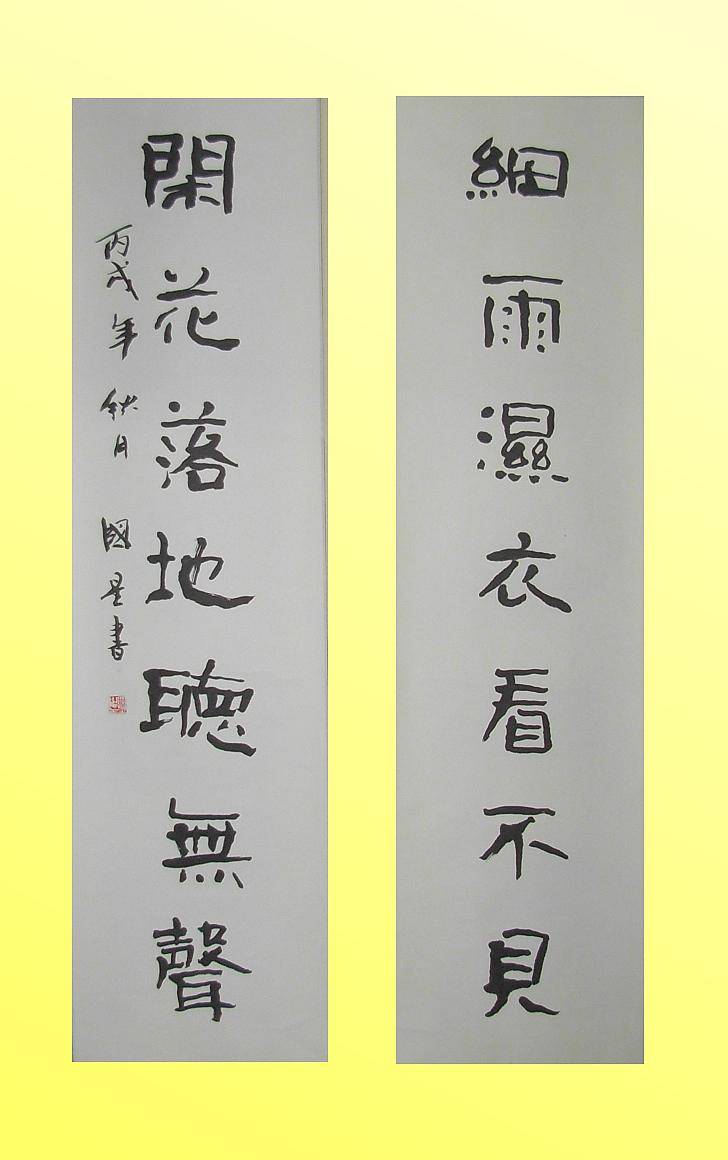 細雨濕衣看不見
閑花落地聽無聲
丙戌年秋月國星書